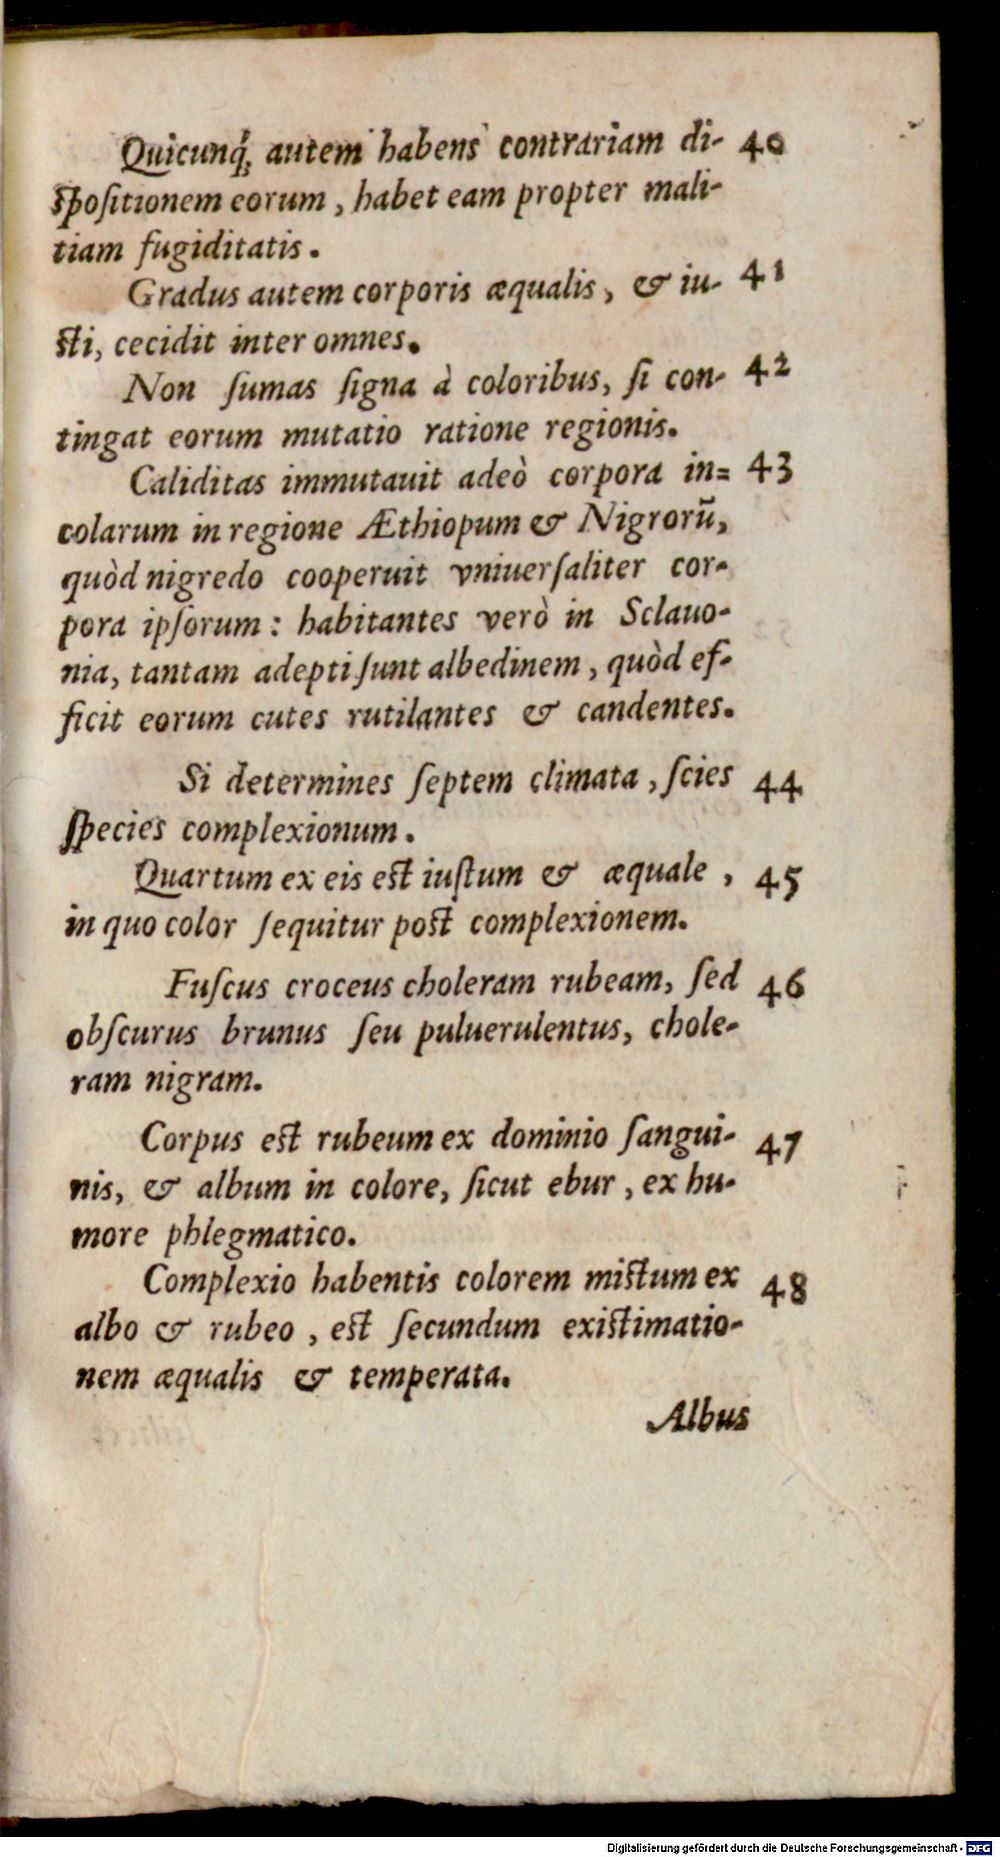 Quicunq́; autem habens contrariam di- 40
ſpoſitionem eorum, habet eam propter mali-
tiam fugiditatis.
Gradus autem corporis æqualis, & iu- 41
ſti, cecidit inter omnes.
Non ſumas ſigna à coloribus, ſi con- 42
tingat eorum mutatio ratione regionis.
Caliditas immutauit adeò corpora in= 43
colarum in regione Æthiopum & Nigrorũ,
quòd nigredo cooperuit vniuerſaliter cor-
pora ipſorum: habitantes verò in Sclauo-
nia, tantam adepti ſunt albedinem, quòd ef-
ficit eorum cutes rutilantes & candentes.
Si determines ſeptem climata, ſcies 44
ſpecies complexionum.
Quartum ex eis eſt iuſtum & æquale, 45
in quo color ſequitur poſt complexionem.
Fuſcus croceus choleram rubeam, ſed 46
obſcurus brunus ſeu puluerulentus, chole-
ram nigram.
Corpus eſt rubeum ex dominio ſangui- 47
nis, & album in colore, ſicut ebur, ex hu-
more phlegmatico.
Complexio habentis colorem miſtum ex 48
albo & rubeo, eſt ſecundum exiſtimatio-
nem æqualis & temperata.
Albus
Digitalisierung gefördert durch die Deutsche Forschungsgemeinschaft - DFG